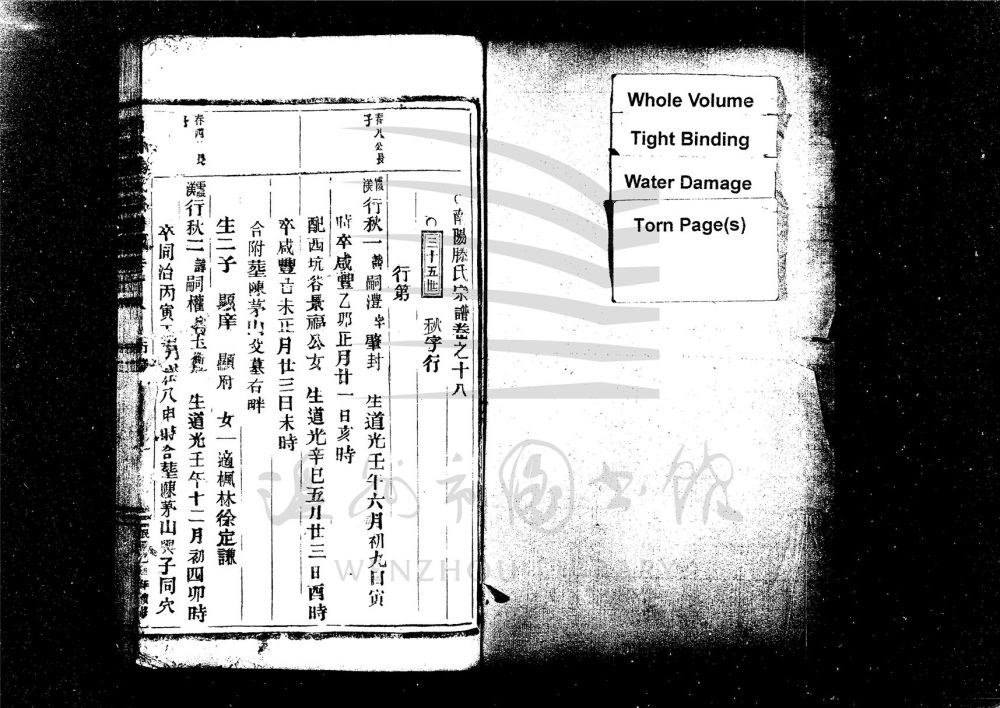 Whole Volume
Tight Binding
Water Damage
Torn Page(s)
南陽滕氏宗譜卷之十八
三十五世 秋字行
行第
春八公長子
行秋一 諱嗣灃 字肇封 生道光壬午六月初九日寅
時卒咸豐乙卯正月廿一日亥時
配西坑谷景福公女 生道光辛巳五月廿三日酉時
卒咸豐己未正月廿三日未時
合附塟陳茅山父墓右畔
生二子 顯庠 顯府 女一適楓林徐定謙
春四 長子
行秋二 諱嗣權 生道光壬午十二月初四卯時
卒同治丙寅 月 八申時合塟陳茅山與子同穴
溫州市圖書館
WENZHOU LIBRARY